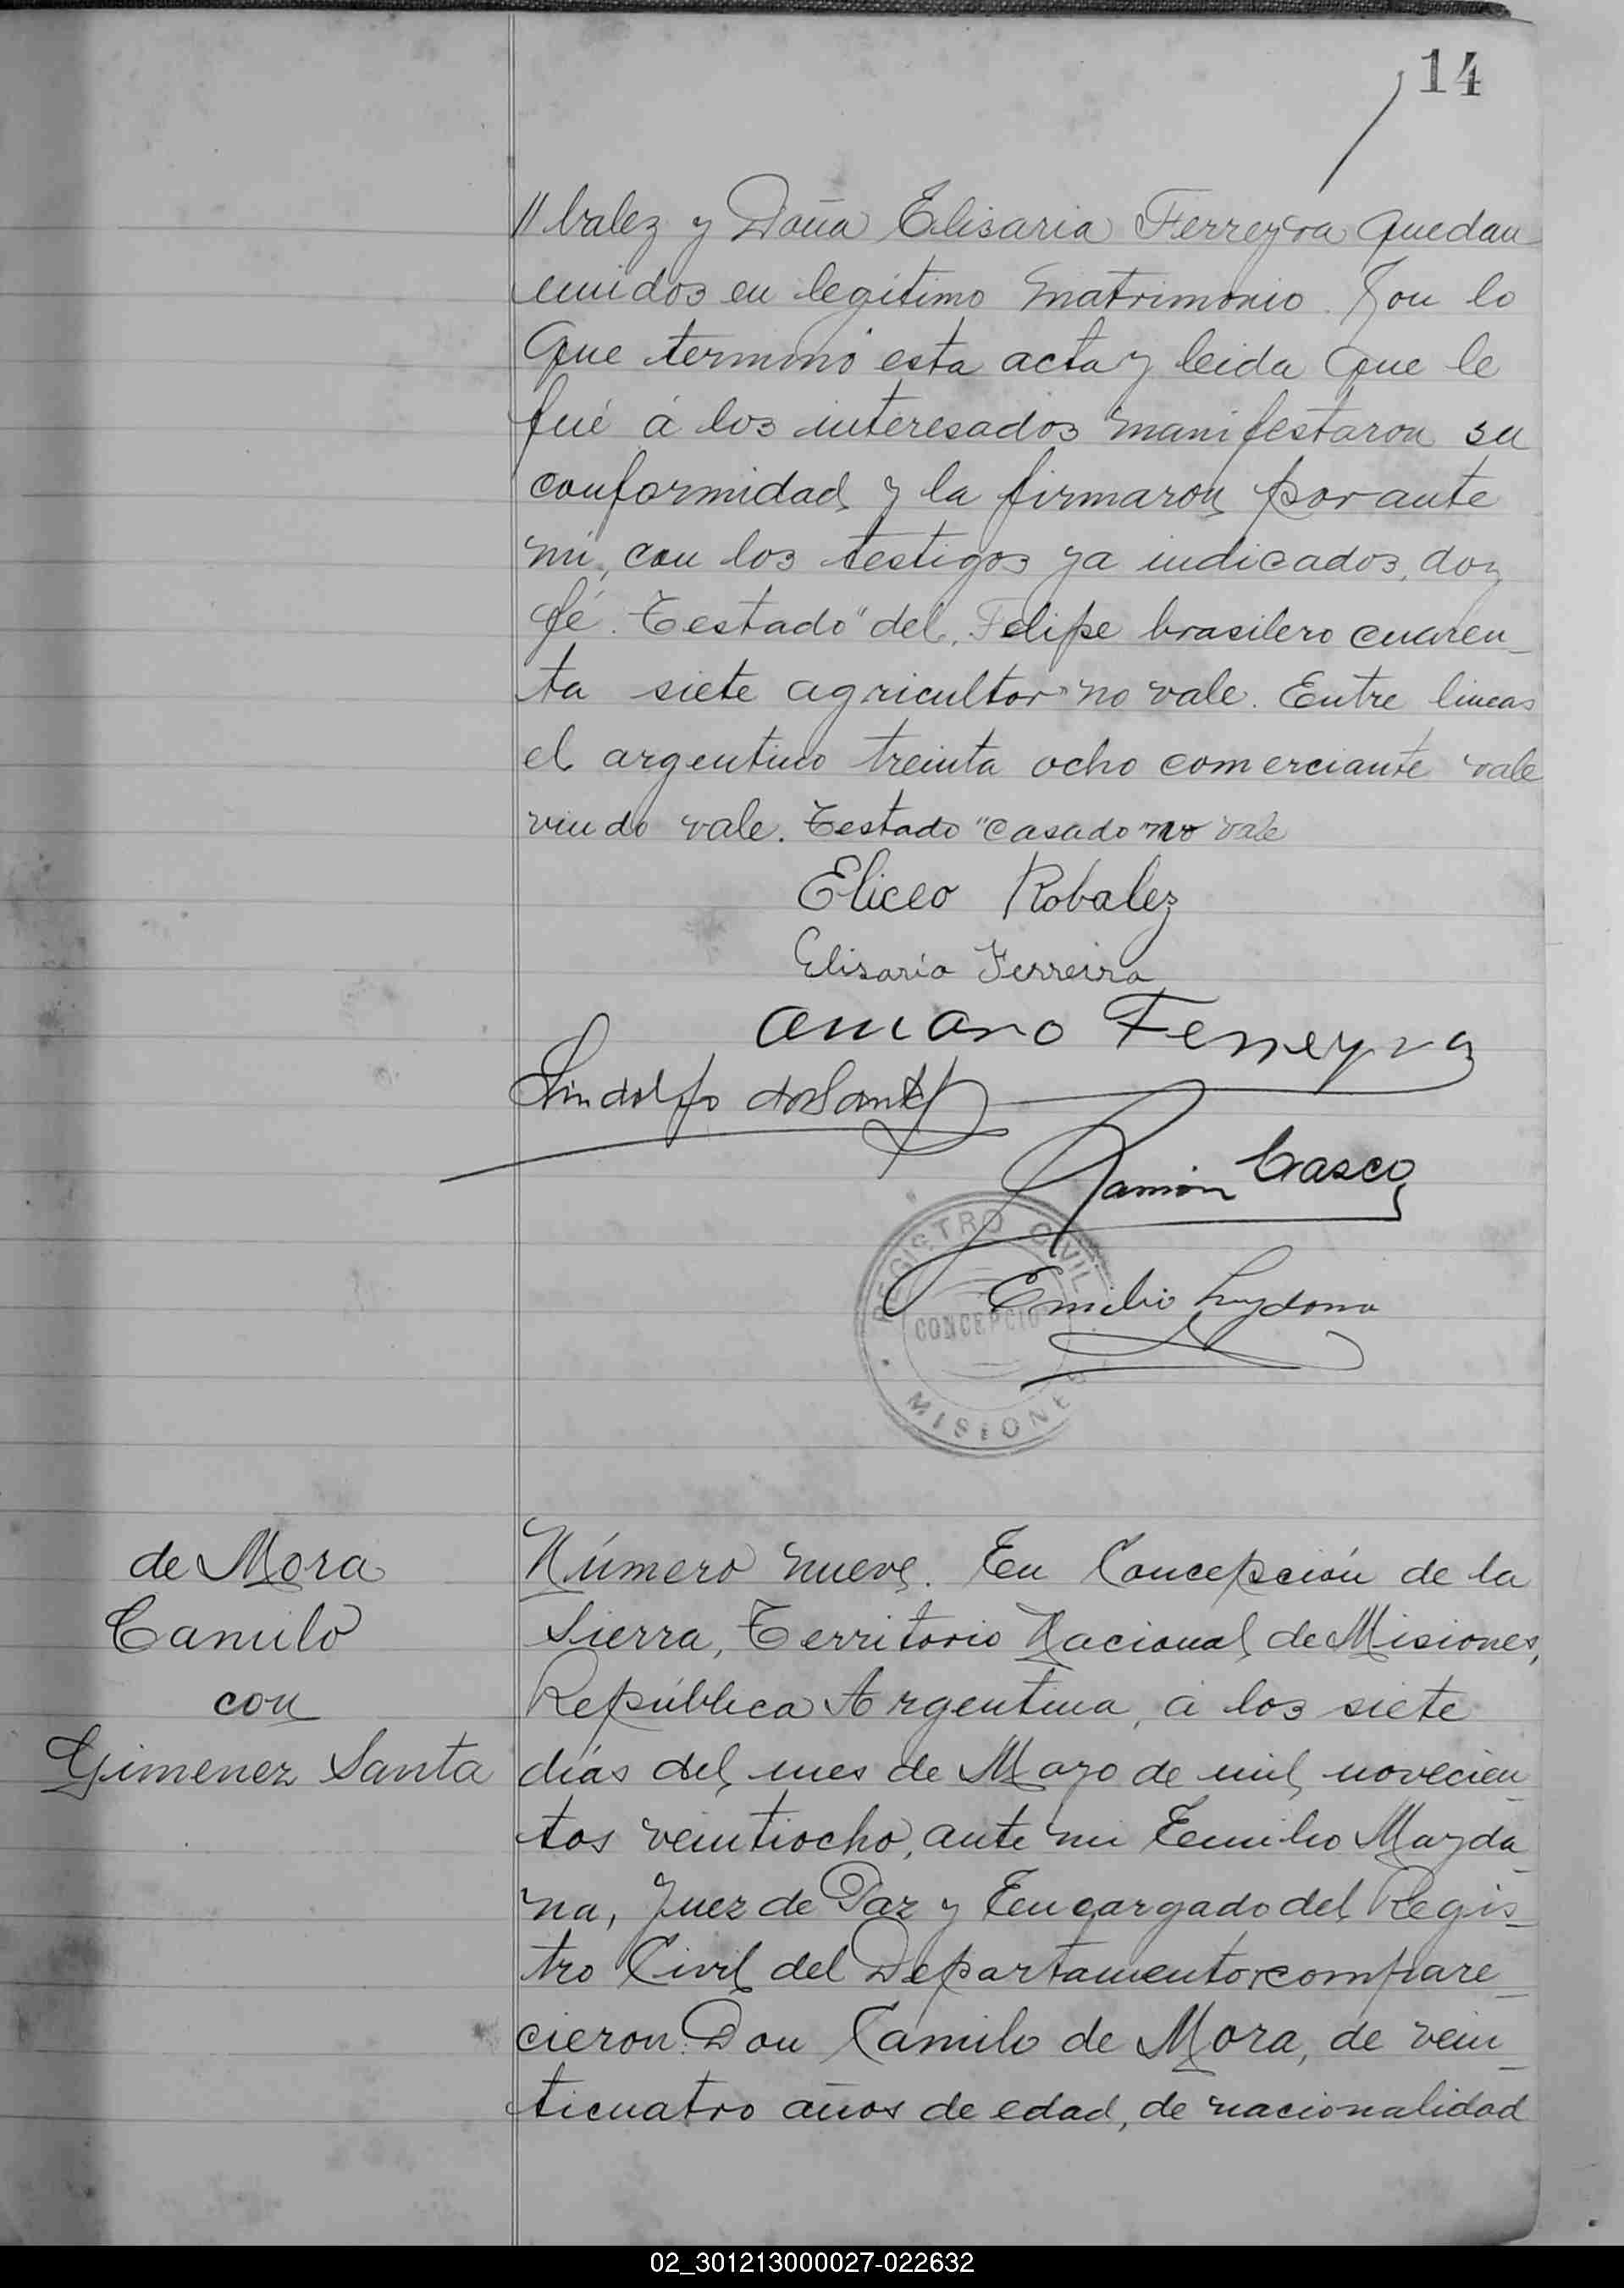 14
// balez y Doña Elisaria Ferreyra quedan
unidos en legítimo matrimonio. Con lo
que terminó esta acta y leida que le
fué á los interesados manifestaron su
conformidad y la firmaron por ante
mi, con los testigos ya indicados, doy
fé. Testado "del, Felipe brasilero cuaren_
ta siete agricultor" no vale. Entre lineas
el argentino treinta ocho comerciante vale
viudo vale. Testado "casado no vale
Eliceo Robalez
Elisaria Ferreira
Amaro Ferreyra
Lindolfo dosSant
Ramón Casco
REGISTRO CIVIL
CONCEPCIO
MISIONES
Emilio
de Mora
Camilo
con
Gimenez Santa
Número nueve. En Concepción de la
Sierra, Territorio Nacional de Misiones,
República Argentina, á los siete
días del mes de Mayo de mil novecien_
tos veintiocho, ante mi Emilio Mayda_
na, Juez de Paz y Encargado del Regis_
tro Civil del Departamento, compare_
cieron: Don Camilo de Mora, de vein_
ticuatro años de edad, de nacionalidad
02_301213000027-022632